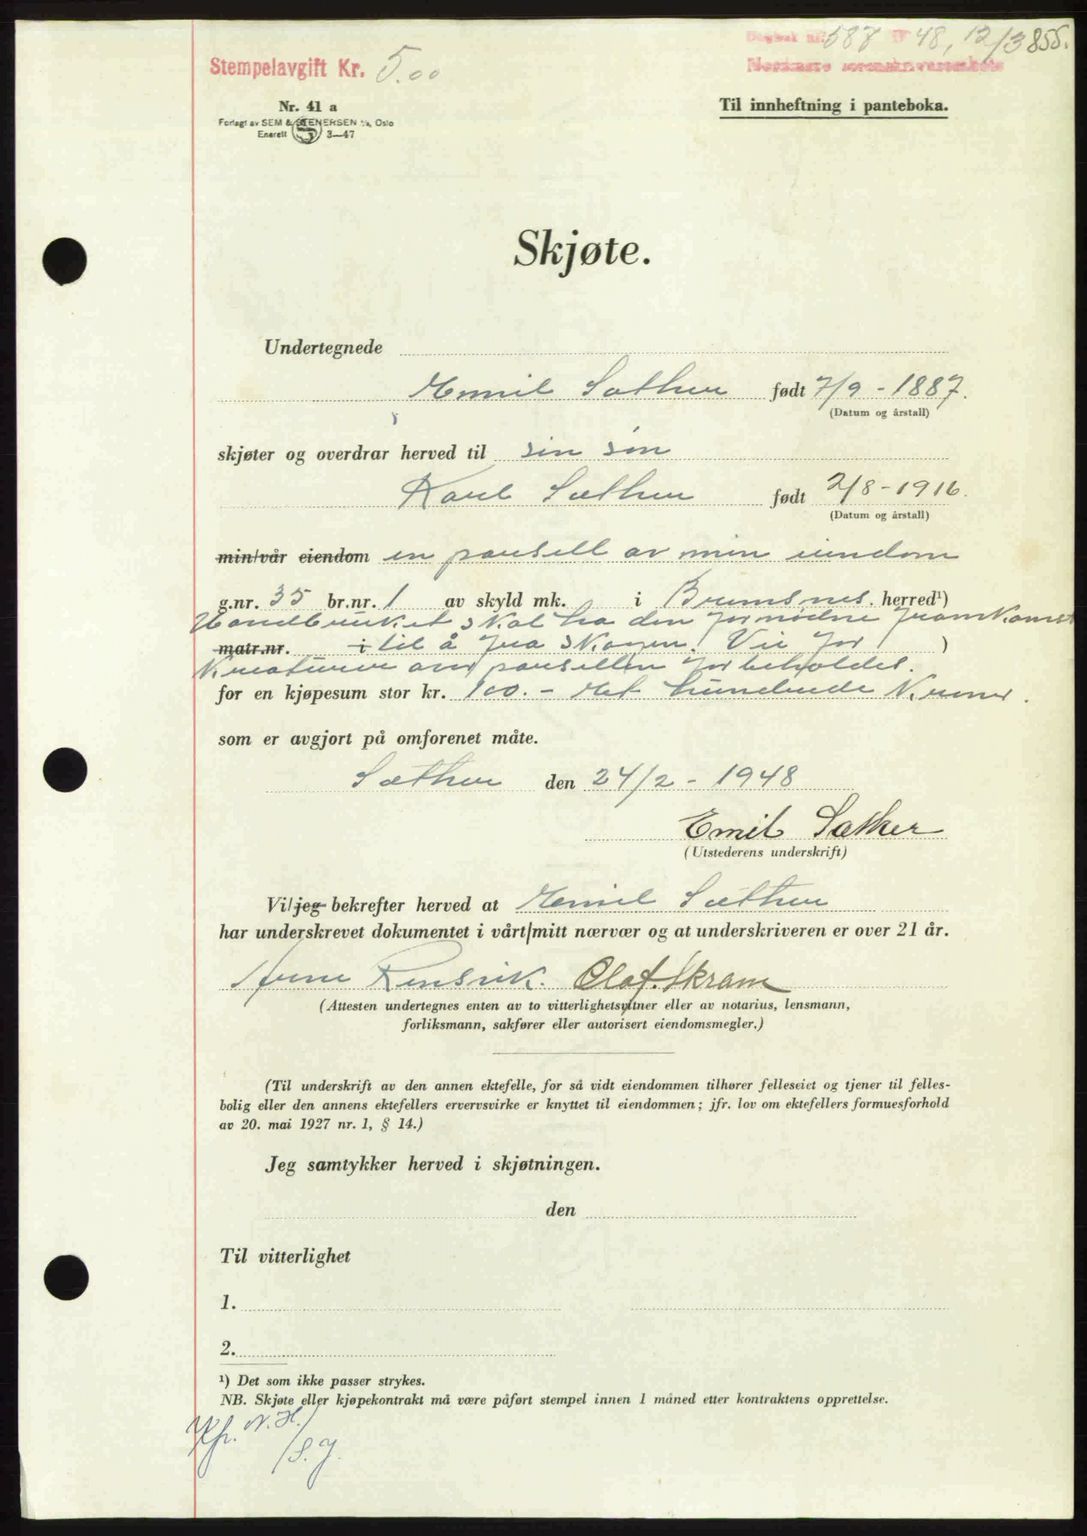 Dagbok nr. 587 19 48, 12/3 855.
Stempelavgift Kr. 5.00
Nordmøre sorenskriverembete
Nr. 41 a
Forlagt av SEM & STENERSEN A/s, Oslo
Enerett 3—47
5
Til innheftning i panteboka.
Skjøte.
Undertegnede
Emil Sæther født 7/9 - 1887.
(Datum og årstall)
skjøter og overdrar herved til sin søn
Karl Sæther født 2/8 - 1916.
(Datum og årstall)
min/vår eiendom en parsell av min eiendom
g.nr. 35 br.nr. 1 av skyld mk. i Bremsnes herred¹)
Hovedbruket skal ha den fornødne framkomst
matr.nr. i til å fra skogen. Vei for )
Kreaturer over parsellen forbeholdes.
for en kjøpesum stor kr. 100. - et hundrede Kroner.
som er avgjort på omforenet måte.
Sæther den 24/2 - 1948
Emil Sæther
(Utstederens underskrift)
Vi/jeg bekrefter herved at Emil Sæther
har underskrevet dokumentet i vårt/mitt nærvær og at underskriveren er over 21 år.
Arne Rensvik. Olaf. Skram
(Attesten undertegnes enten av to vitterlighetsvitner eller av notarius, lensmann,
forliksmann, sakfører eller autorisert eiendomsmegler.)
(Til underskrift av den annen ektefelle, for så vidt eiendommen tilhører felleseiet og tjener til felles-
bolig eller den annens ektefellers ervervsvirke er knyttet til eiendommen; jfr. lov om ektefellers formuesforhold
av 20. mai 1927 nr. 1, § 14.)
Jeg samtykker herved i skjøtningen.
den
Til vitterlighet
1.
2.
¹) Det som ikke passer strykes.
NB. Skjøte eller kjøpekontrakt må være påført stempel innen 1 måned etter kontraktens opprettelse.
Kfr. N.H./
/S.J.